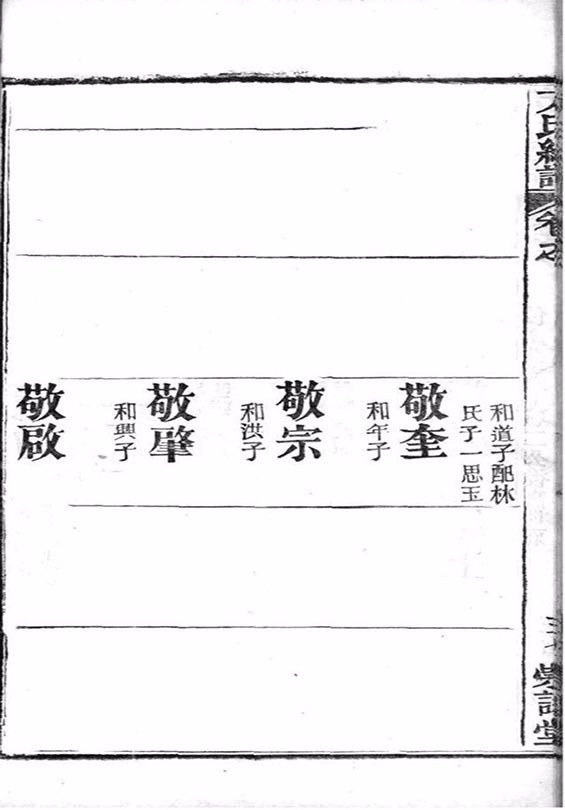 氏
卷之
堂
和道子配林
氏子一思玉
敬奎
和年子
敬宗
和洪子
敬肇
和興子
敬啟